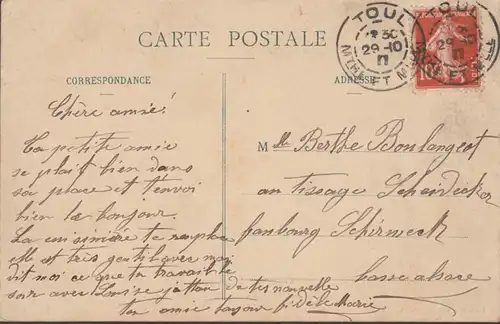 CARTE POSTALE
TOUL
7 30
29-10
11
MTHE ET M
TOUL
29
CORRESPONDANCE
ADRESSE
Chère amie!
Ta petite amie
se plait bien dans
sa place et t'envoi
bien le bonjour.
La cuisinière te remplace
elle est très gentil avec moi
dit moi ce que tu travail le
soir avec Louise j'attan de tes nouvelle
ton amie toujour fidèle Marie
Mlle Berthe Boulangeot
au tissage Scheidecker
faubourg Schirmeck
basse alsace